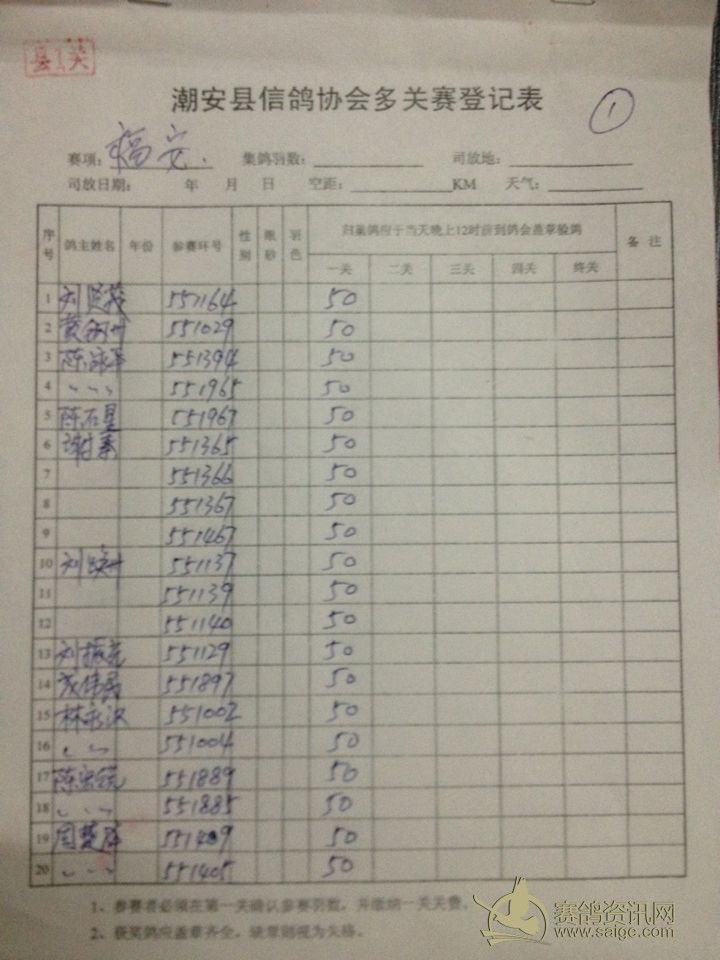 县1关
潮安县信鸽协会多关赛登记表
①
赛项: 福安. 集鸽羽数: 司放地:
司放日期: 年 月 日 空距: KM 天气:
序号 鸽主姓名 年份 参赛环号 性别 眼砂 羽色 归巢鸽应于当天晚上12时前到鸽会盖章验鸽 备注
一关 二关 三关 四关 终关
1 刘 551164 50
2 黄 551029 50
3 陈 551394 50
4 〃 〃 〃 551965 50
5 陈石星 551967 50
6 谢 551365 50
7 551366 50
8 551367 50
9 551467 50
10 刘 551137 50
11 551139 50
12 551140 50
13 刘振 551129 50
14 伟 551897 50
15 林永 551002 50
16 〃 〃 551004 50
17 陈 551889 50
18 〃 〃 〃 551885 50
19 周楚 551409 50
20 〃 〃 〃 551405 50
1、参赛者必须在第一关确认参赛羽数，并缴纳一关关费。
2、获奖鸽应盖章齐全。缺章则视为失格。
赛鸽资讯网
www.saige.com